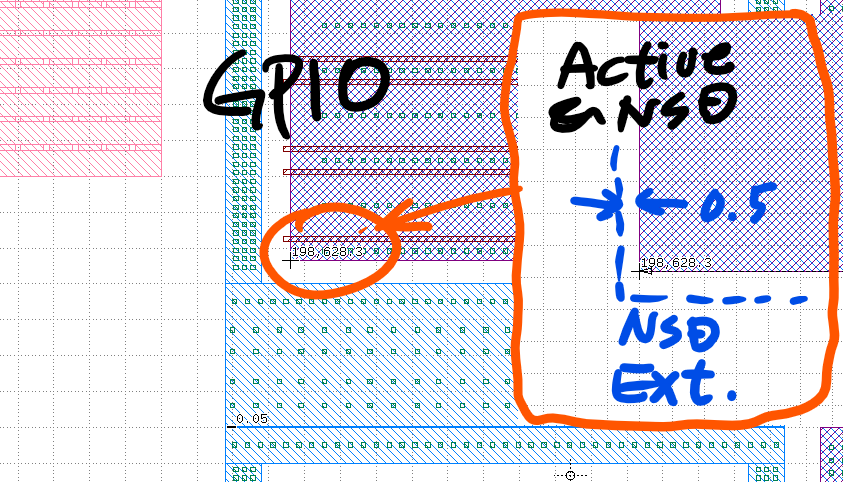 GPIO
Active
& NSD
0.5
198,628.3
198,628.3
NSD
Ext.
0.05